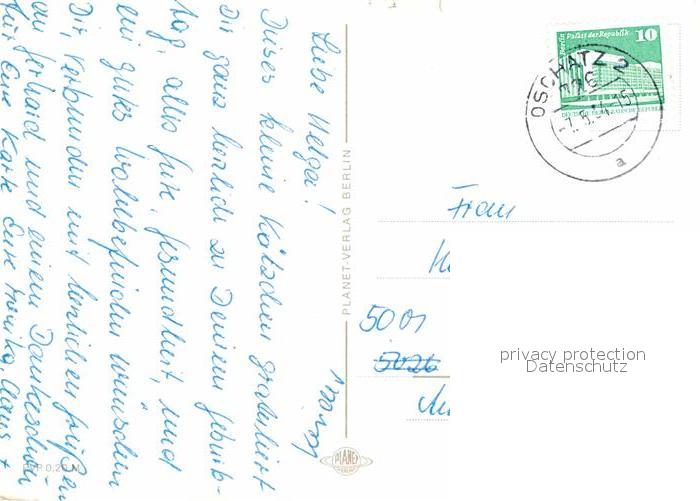 Liebe Helga!
Dieses kleine Kätzchen gratuliert
Dir ganz herzlich zu Deinem Geburts-
tag, alles Gute, Gesundheit, und
ein gutes Wohlbefinden wünschen
Dir, verbunden mit herzlichen Grüßen
an Gerhard und einem Dankeschön
für Eure Karte Eure Monika, Claus +
PLANET-VERLAG BERLIN
PLANET
0,20 M
Berlin Palast der Republik 10
DEUTSCHE DEMOKRATISCHE REPUBLIK
OSCHATZ 2
a
Frau
5001
5026
privacy protection
Datenschutz